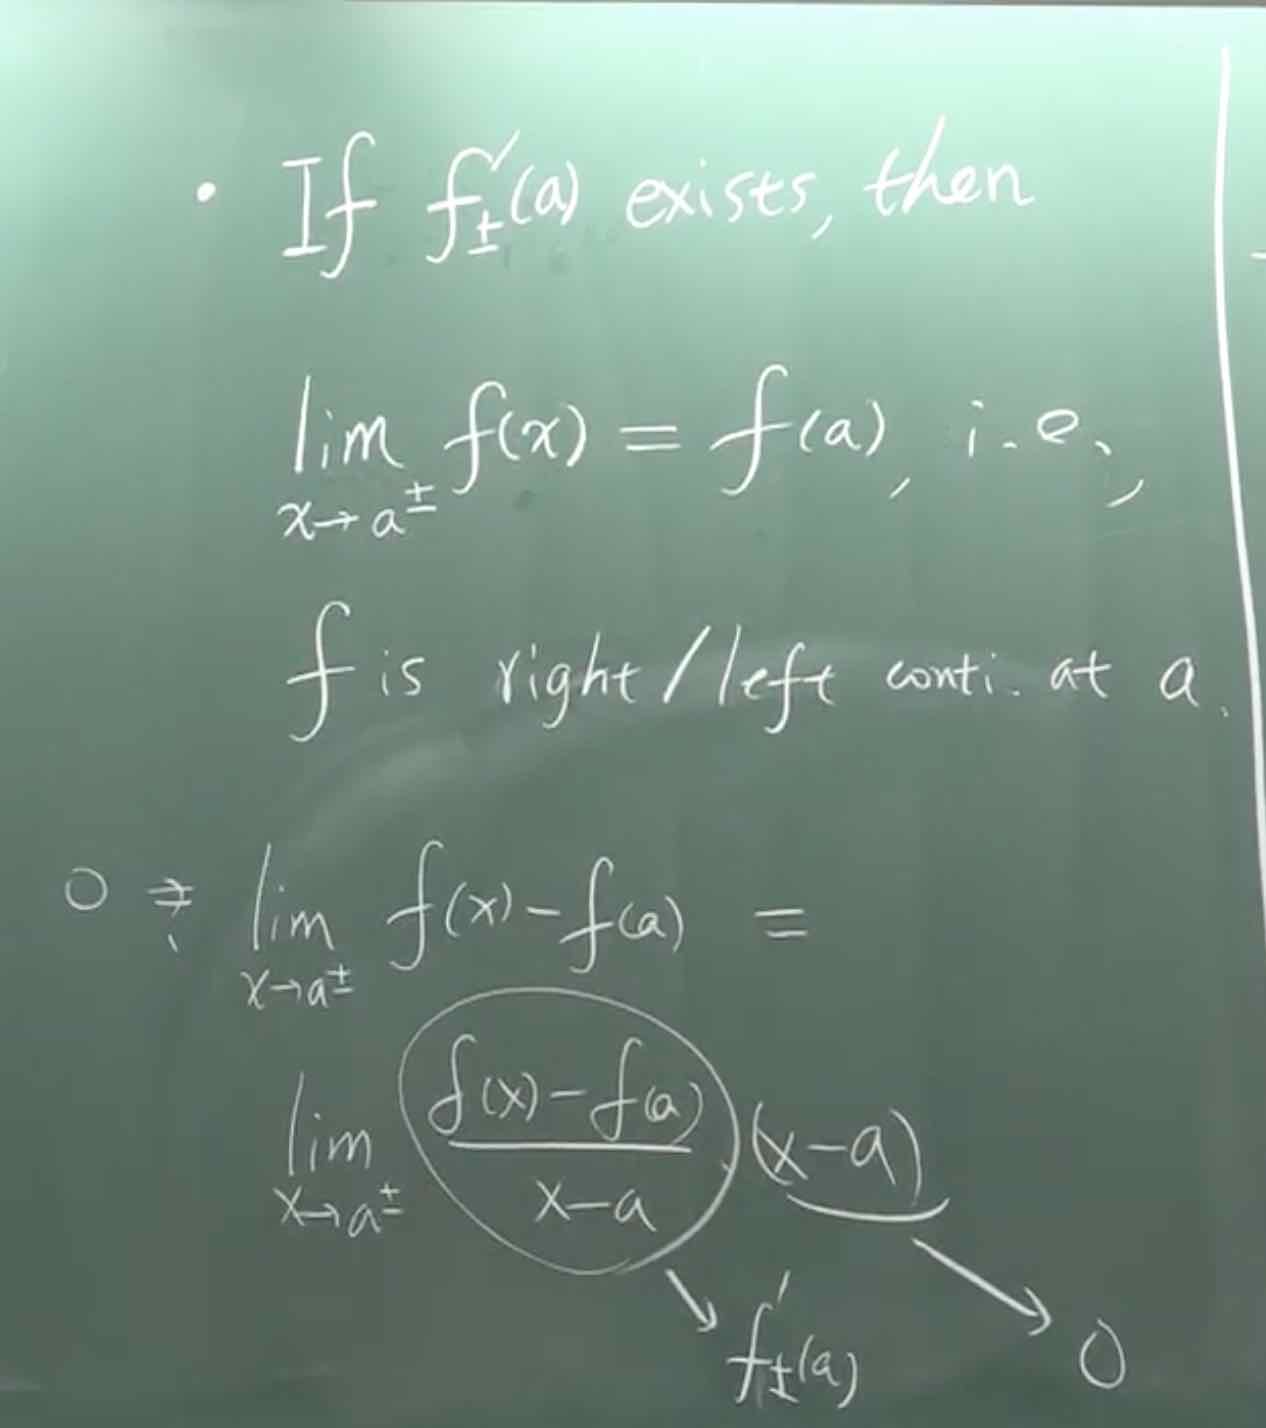 • If f'±(a) exists, then
lim x→a± f(x) = f(a), i.e.,
f is right/left conti. at a.
0 ≟ lim x→a± f(x) - f(a) =
lim x→a± (f(x) - f(a))/(x-a) (x-a)
f'±(a) 0